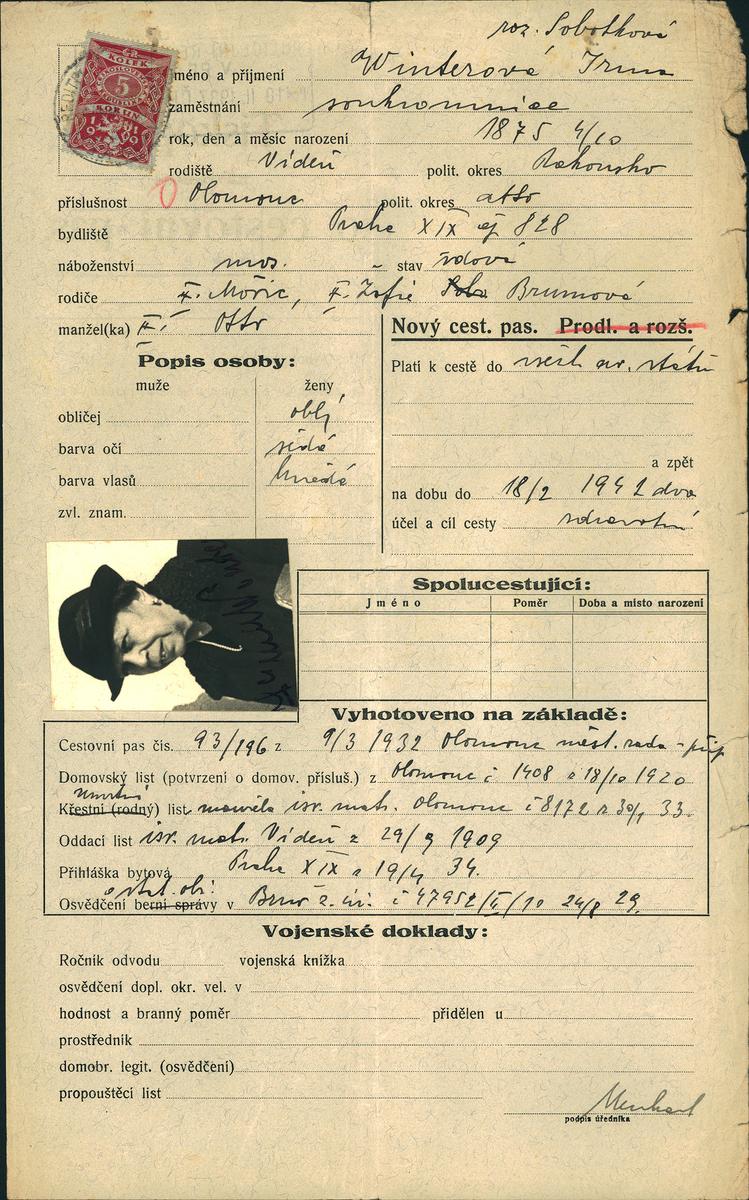 roz. Sobotková
jméno a příjmení Winterová Irma
zaměstnání soukromnice
rok, den a měsíc narození 1875 4/10
rodiště Vídeň polit. okres Rakousko
příslušnost Olomouc polit. okres
bydliště Praha XIX čp 828
náboženství mos. stav vdova
rodiče Mořic, Žofie Brumová
manžel(ka) Otto
Nový cest. pas. Prodl. a rozš.
Popis osoby:
Platí k cestě do všech států
muže ženy
obličej oblý
barva očí šedá
barva vlasů hnědá
zvl. znam.
a zpět
na dobu do 18/2 1942 dva
účel a cíl cesty zdravotní
Spolucestující:
Jméno Poměr Doba a místo narození
Vyhotoveno na základě:
Cestovní pas čís. 93/196 z 9/3 1932 Olomouc měst. rada
Domovský list (potvrzení o domov. přísluš.) z Olomouc č 1408 z 18/10 1920
Úmrtní
Křestní (rodný) list manžela isr. mat. Olomouc č 8172 z 30/1 33.
Oddací list isr. mat. Vídeň z 29/9 1909
Přihláška bytová Praha XIX z 19/4 34.
o stát. obč.
Osvědčení berní správy v Brno z. úř. č 47952/II/10 24/8 29.
Vojenské doklady:
Ročník odvodu vojenská knížka
osvědčení dopl. okr. vel. v
hodnost a branný poměr přidělen u
prostředník
domobr. legit. (osvědčení)
propouštěcí list
podpis úředníka